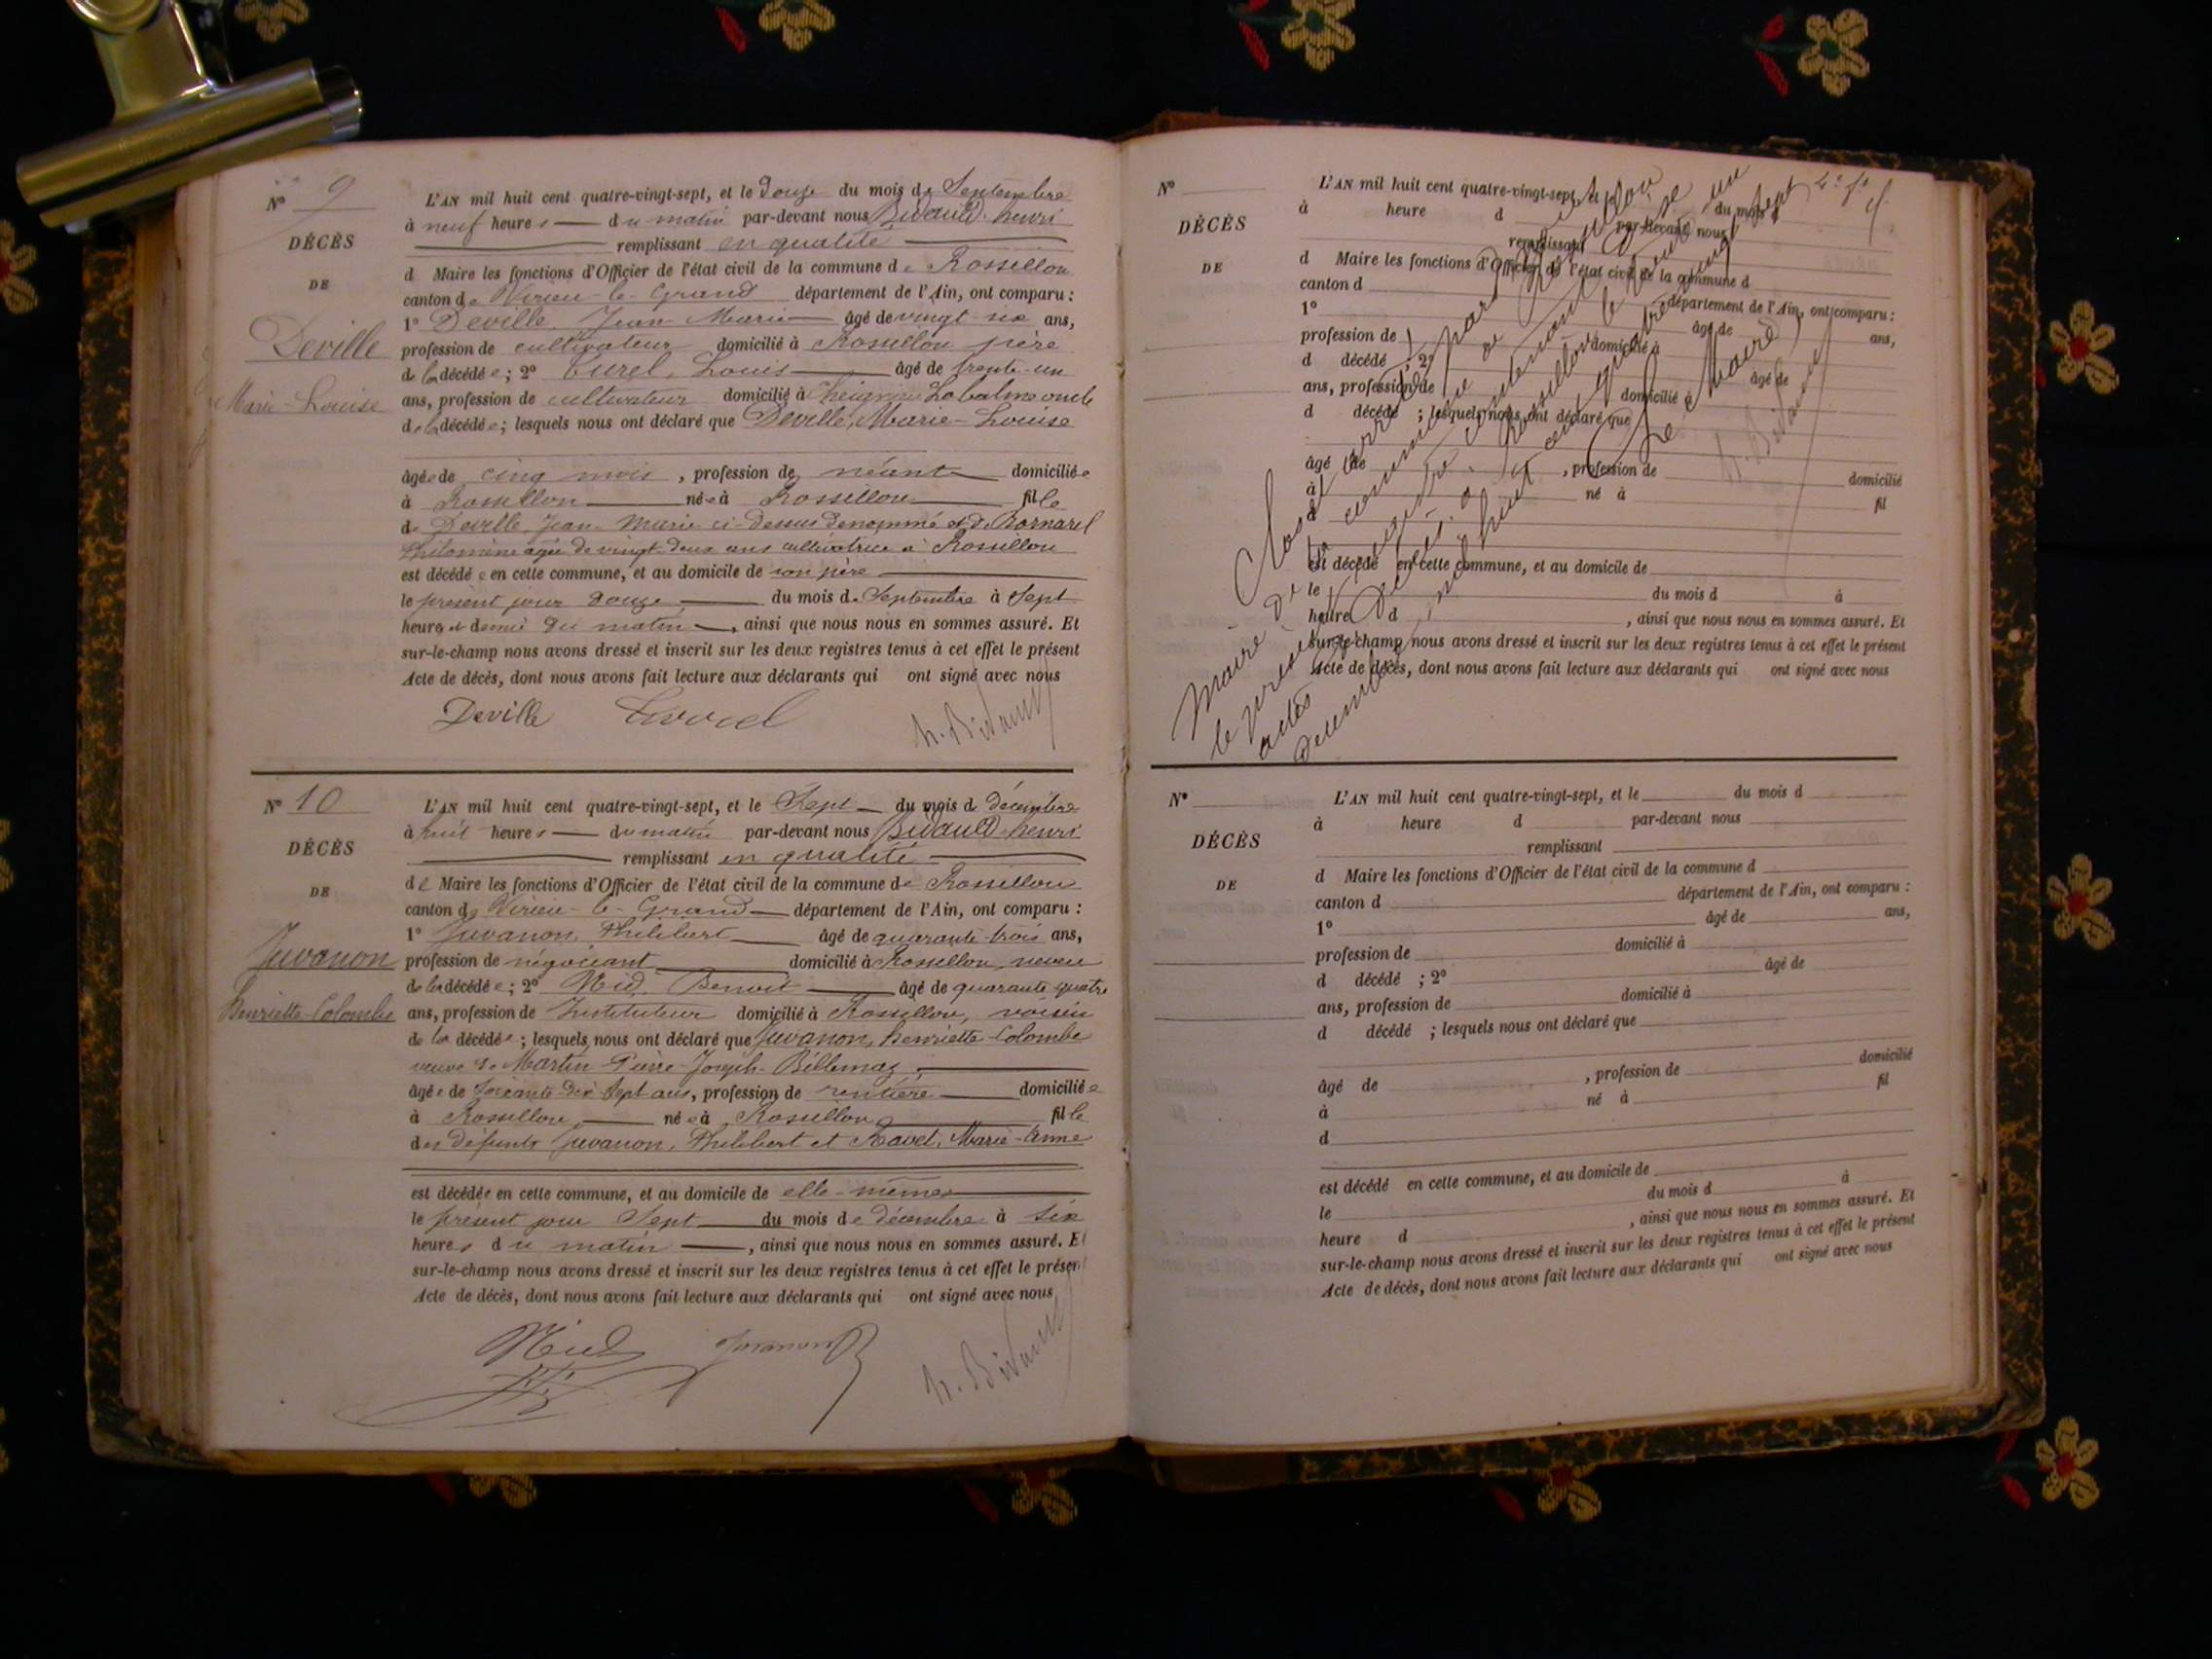 N° 9
DÉCÈS
DE
Deville
Marie-Louise
L'AN mil huit cent quatre-vingt-sept, et le douze du mois de Septembre
à neuf heures du matin par-devant nous Bidauld henri
remplissant en qualité
d Maire les fonctions d'Officier de l'état civil de la commune de Rossillon
canton de Virieu-le-Grand département de l'Ain, ont comparu :
1° Deville, Jean-Marie âgé de vingt six ans,
profession de cultivateur domicilié à Rossillon père
de la décédée ; 2° Louis âgé de trente-un
ans, profession de cultivateur domicilié à Cheignieu Labalme oncle
de la décédée ; lesquels nous ont déclaré que Deville, Marie-Louise
âgée de cinq mois, profession de néant domiciliée
à Rossillon née à Rossillon fille
de Deville Jean-Marie ci-dessus dénommé et de Bornarel
Philomène agée de vingt-deux ans cultivatrice à Rossillon
est décédée en cette commune, et au domicile de son père
le présent jour douze du mois de Septembre à Sept
heures et demie du matin, ainsi que nous nous en sommes assuré. Et
sur-le-champ nous avons dressé et inscrit sur les deux registres tenus à cet effet le présent
Acte de décès, dont nous avons fait lecture aux déclarants qui ont signé avec nous
Deville h. Bidauld
N° 10
DÉCÈS
DE
Juvanon
henriette-Colombe
L'AN mil huit cent quatre-vingt-sept, et le Sept du mois d décembre
à huit heures du matin par-devant nous Bidauld henri
remplissant en qualité
de Maire les fonctions d'Officier de l'état civil de la commune de Rossillon
canton de Virieu-le-Grand département de l'Ain, ont comparu :
1° Juvanon, Philibert âgé de quarante-trois ans,
profession de négociant domicilié à Rossillon, neveu
de la décédée ; 2° Nid, Benoit âgé de quarante-quatre
ans, profession de Instituteur domicilié à Rossillon, voisin
de la décédée ; lesquels nous ont déclaré que Juvanon, henriette-Colombe
veuve de Martin-Pierre-Joseph-Billemaz,
âgée de Soixante-dix Sept ans, profession de rentière domiciliée
à Rossillon, née à Rossillon fille
des défunts Juvanon, Philibert et Ravet, Marie-Anne
est décédée en cette commune, et au domicile de elle-même
le présent jour Sept du mois de décembre à six
heures du matin, ainsi que nous nous en sommes assuré. Et
sur-le-champ nous avons dressé et inscrit sur les deux registres tenus à cet effet le présent
Acte de décès, dont nous avons fait lecture aux déclarants qui ont signé avec nous
Nid Juvanon h. Bidauld
N°
DÉCÈS
DE
L'AN mil huit cent quatre-vingt-sept, et le du mois d
à heure d par-devant nous
remplissant
d Maire les fonctions d'Officier de l'état civil de la commune d
canton d département de l'Ain, ont comparu :
1° âgé de ans,
profession de domicilié à
d décédé ; 2° âgé de
ans, profession de domicilié à
d décédé ; lesquels nous ont déclaré que
âgé de , profession de domicilié
à né à fil
d
est décédé en cette commune, et au domicile de
le du mois d à
heure d , ainsi que nous nous en sommes assuré. Et
sur-le-champ nous avons dressé et inscrit sur les deux registres tenus à cet effet le présent
Acte de décès, dont nous avons fait lecture aux déclarants qui ont signé avec nous
Clos et arrêté par
Maire de la commune de Rossillon
le présent registre contenant dix
actes de décès. à Rossillon le trente un
décembre mil huit cent quatre vingt sept
Le Maire
h. Bidauld
N°
DÉCÈS
DE
L'AN mil huit cent quatre-vingt-sept, et le du mois d
à heure d par-devant nous
remplissant
d Maire les fonctions d'Officier de l'état civil de la commune d
canton d département de l'Ain, ont comparu :
1° âgé de ans,
profession de domicilié à
d décédé ; 2° âgé de
ans, profession de domicilié à
d décédé ; lesquels nous ont déclaré que
âgé de , profession de domicilié
à né à fil
d
est décédé en cette commune, et au domicile de
le du mois d à
heure d , ainsi que nous nous en sommes assuré. Et
sur-le-champ nous avons dressé et inscrit sur les deux registres tenus à cet effet le présent
Acte de décès, dont nous avons fait lecture aux déclarants qui ont signé avec nous